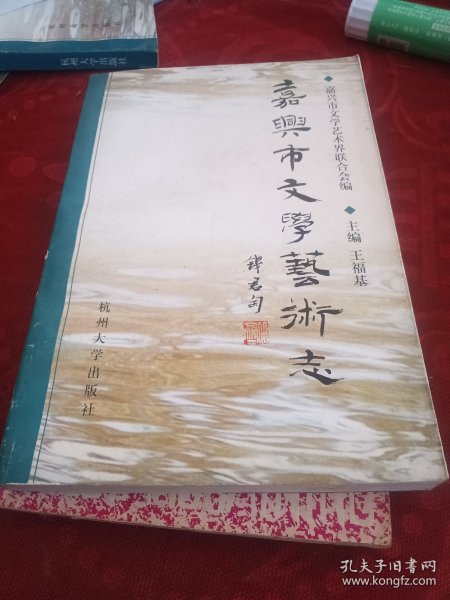 嘉兴市文学艺术界联合会编
主编 王福基
嘉興市文學藝術志
钱君匋
杭州大学出版社
杭州大学出版社
孔夫子旧书网
www.kongfz.com